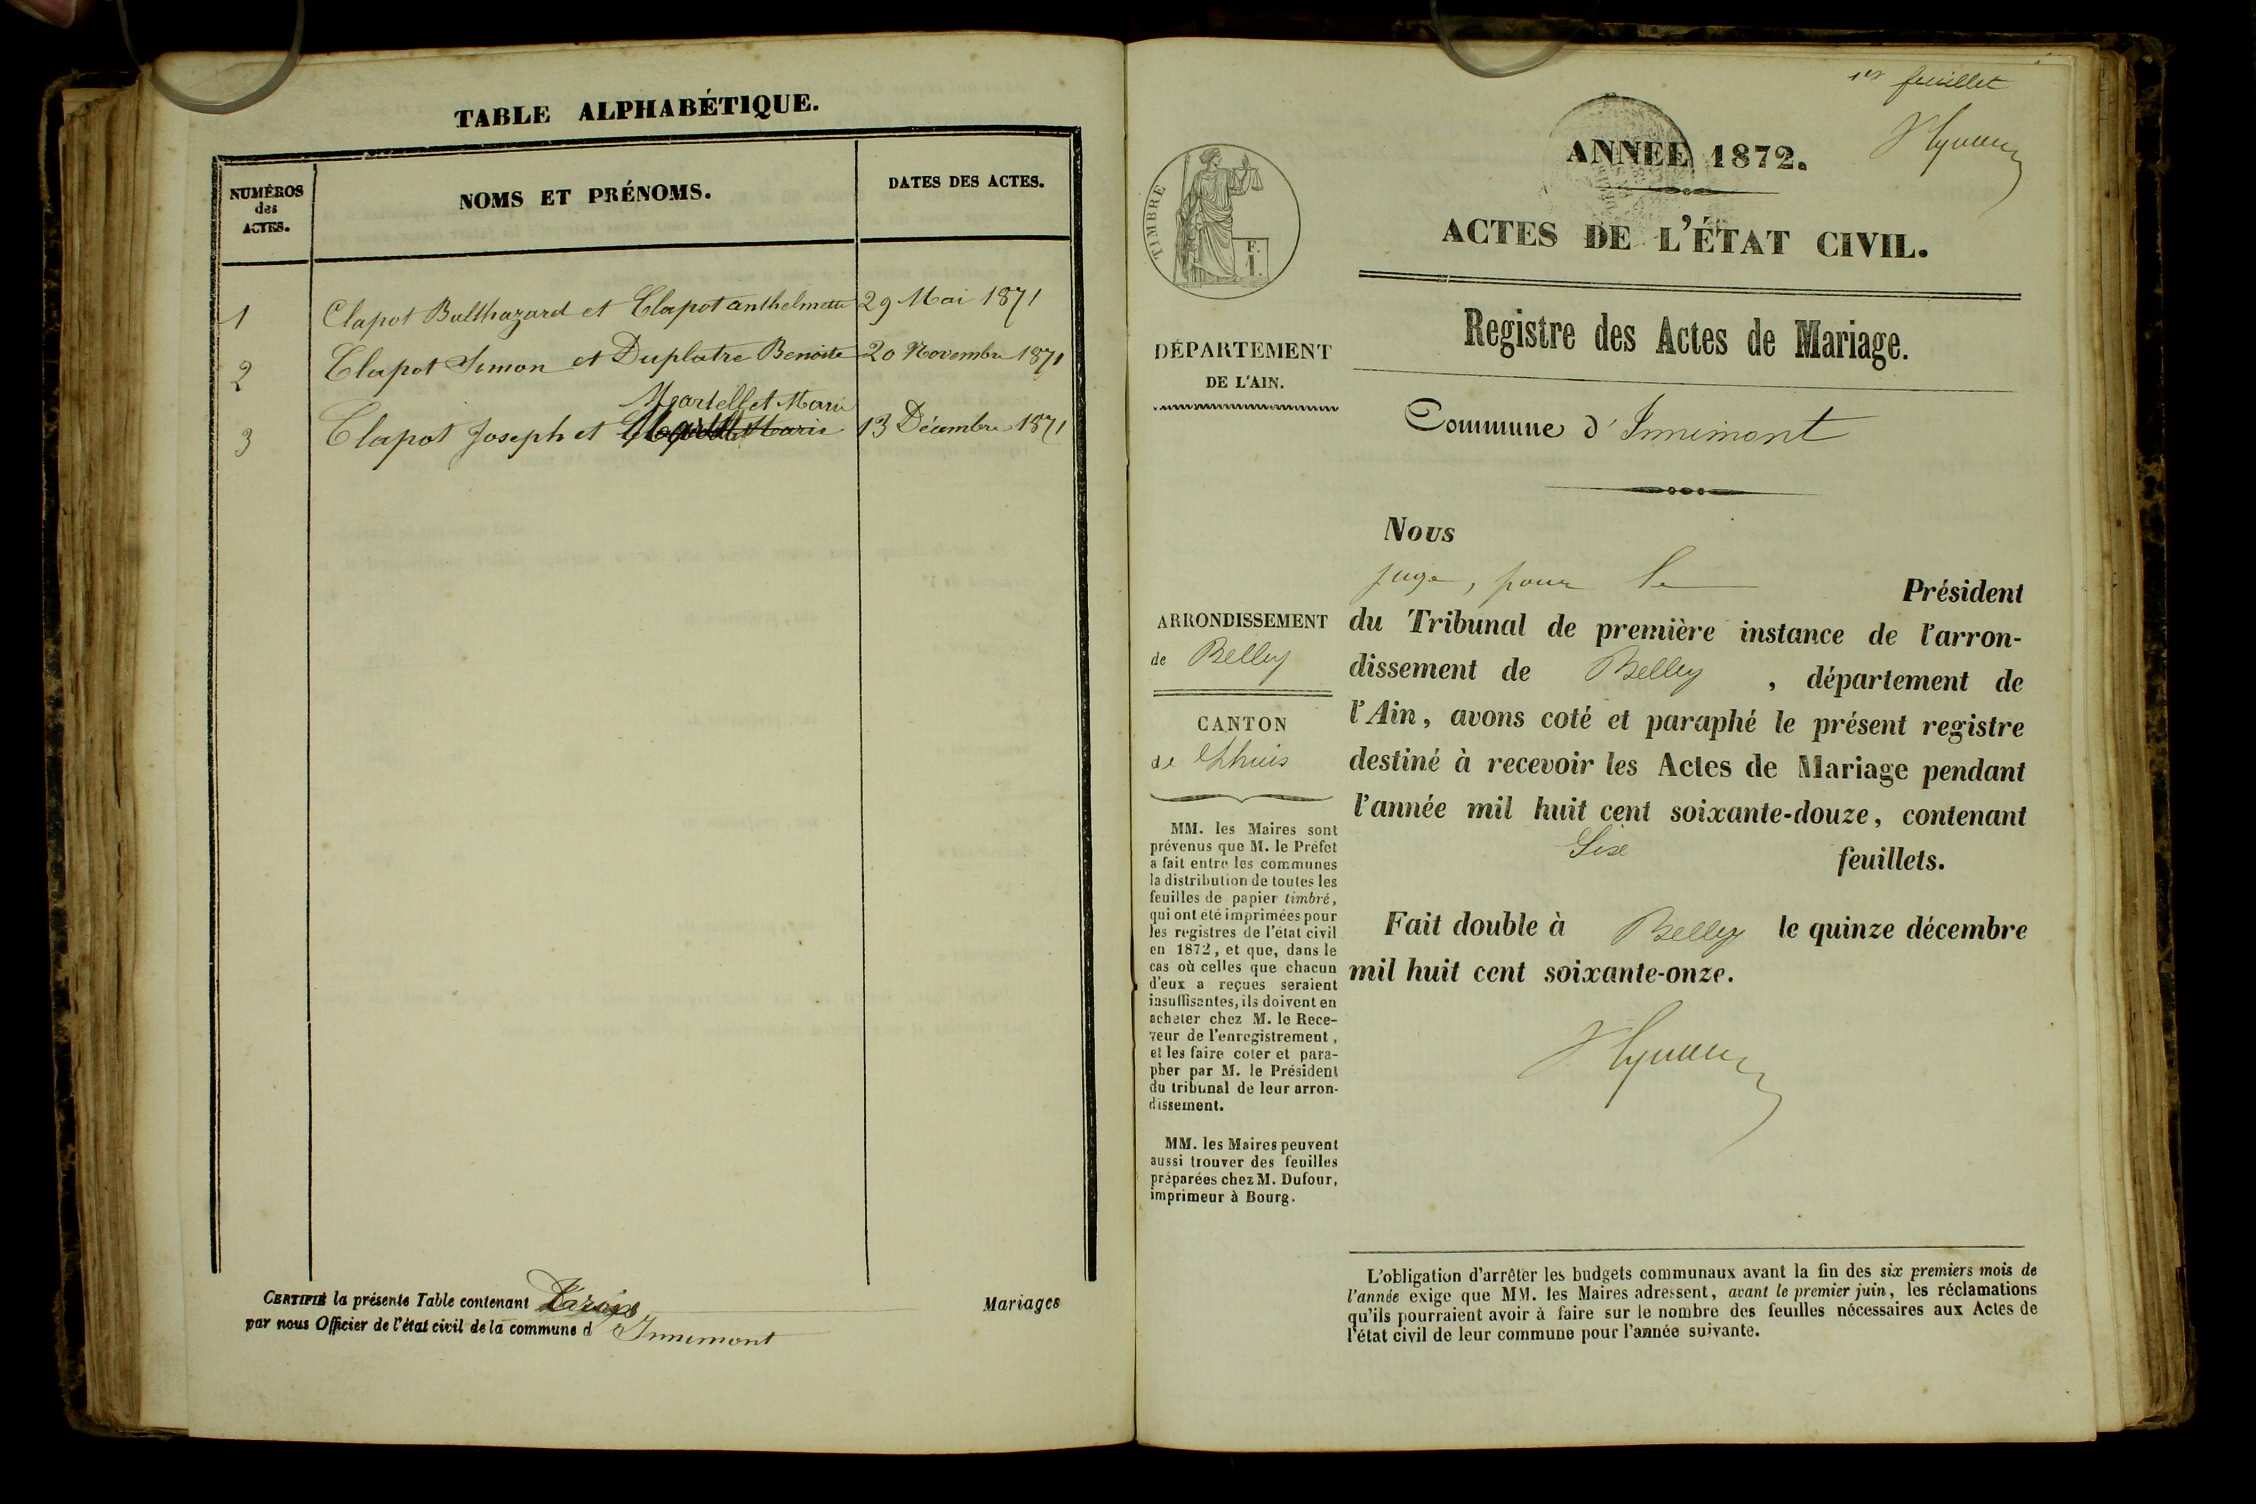 TABLE ALPHABÉTIQUE.
NUMÉROS
des
ACTES.
NOMS ET PRÉNOMS.
DATES DES ACTES.
1 Clapot Balthazard et Clapot anthelmette 29 Mai 1871
2 Clapot Simon et Duplatre Benoite 20 Novembre 1871
Martellet Marie
3 Clapot Joseph et 13 Décembre 1871
CERTIFIÉ la présente Table contenant trois Mariages
par nous Officier de l'état civil de la commune d Innimont
1er feuillet
ANNÉE 1872.
ACTES DE L'ÉTAT CIVIL.
Registre des Actes de Mariage.
Commune d'Innimont
TIMBRE
F.
1.
DÉPARTEMENT
DE L'AIN.
ARRONDISSEMENT
de Belley
CANTON
de Lhuis
MM. les Maires sont
prévenus que M. le Préfet
a fait entre les communes
la distribution de toutes les
feuilles de papier timbré,
qui ont été imprimées pour
les registres de l'état civil
en 1872, et que, dans le
cas où celles que chacun
d'eux a reçues seraient
insuffisantes, ils doivent en
acheter chez M. le Rece-
veur de l'enregistrement,
et les faire coter et para-
pher par M. le Président
du tribunal de leur arron-
dissement.
MM. les Maires peuvent
aussi trouver des feuilles
préparées chez M. Dufour,
imprimeur à Bourg.
Nous
juge, pour le Président
du Tribunal de première instance de l'arron-
dissement de Belley, département de
l'Ain, avons coté et paraphé le présent registre
destiné à recevoir les Actes de Mariage pendant
l'année mil huit cent soixante-douze, contenant
Six feuillets.
Fait double à Belley le quinze décembre
mil huit cent soixante-onze.
L'obligation d'arrêter les budgets communaux avant la fin des six premiers mois de
l'année exige que MM. les Maires adressent, avant le premier juin, les réclamations
qu'ils pourraient avoir à faire sur le nombre des feuilles nécessaires aux Actes de
l'état civil de leur commune pour l'année suivante.